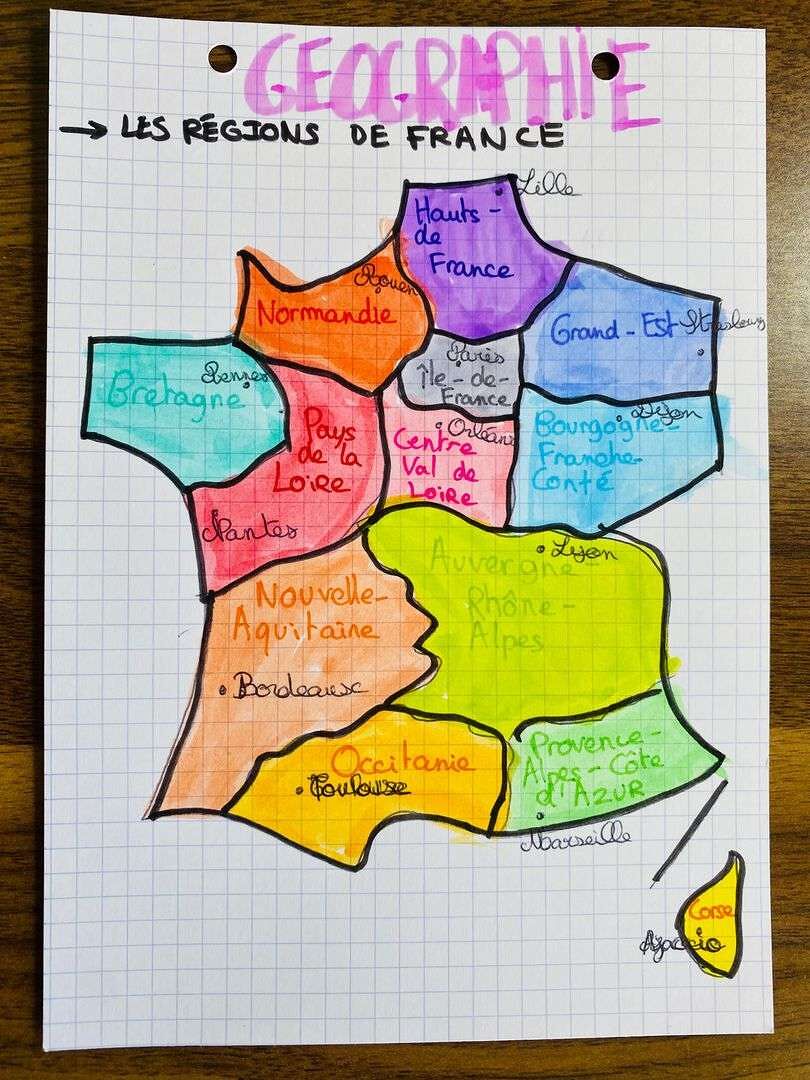 GEOGRAPHIE
→ LES RÉGIONS DE FRANCE
Lille
Hauts-
de
France
Rouen
Normandie
Grand-Est
Strasbourg
Paris
Île-de-
France
Rennes
Bretagne
Pays
de la
LOIRE
Nantes
Orléans
Centre
Val de
LOIRE
Dijon
Bourgogne-
Franche
Conté
Lyon
Auvergne-
Rhône-
Alpes
Nouvelle-
Aquitaine
Bordeaux
Occitanie
Toulouse
Provence-
Alpes-Côte
d'AZUR
Marseille
Corse
Ajaccio